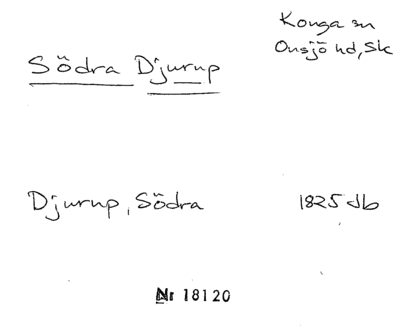 Konga sn
Onsjö hd, Sk
Södra Djurup
Djurup, Södra 1825 db
Nr 18120